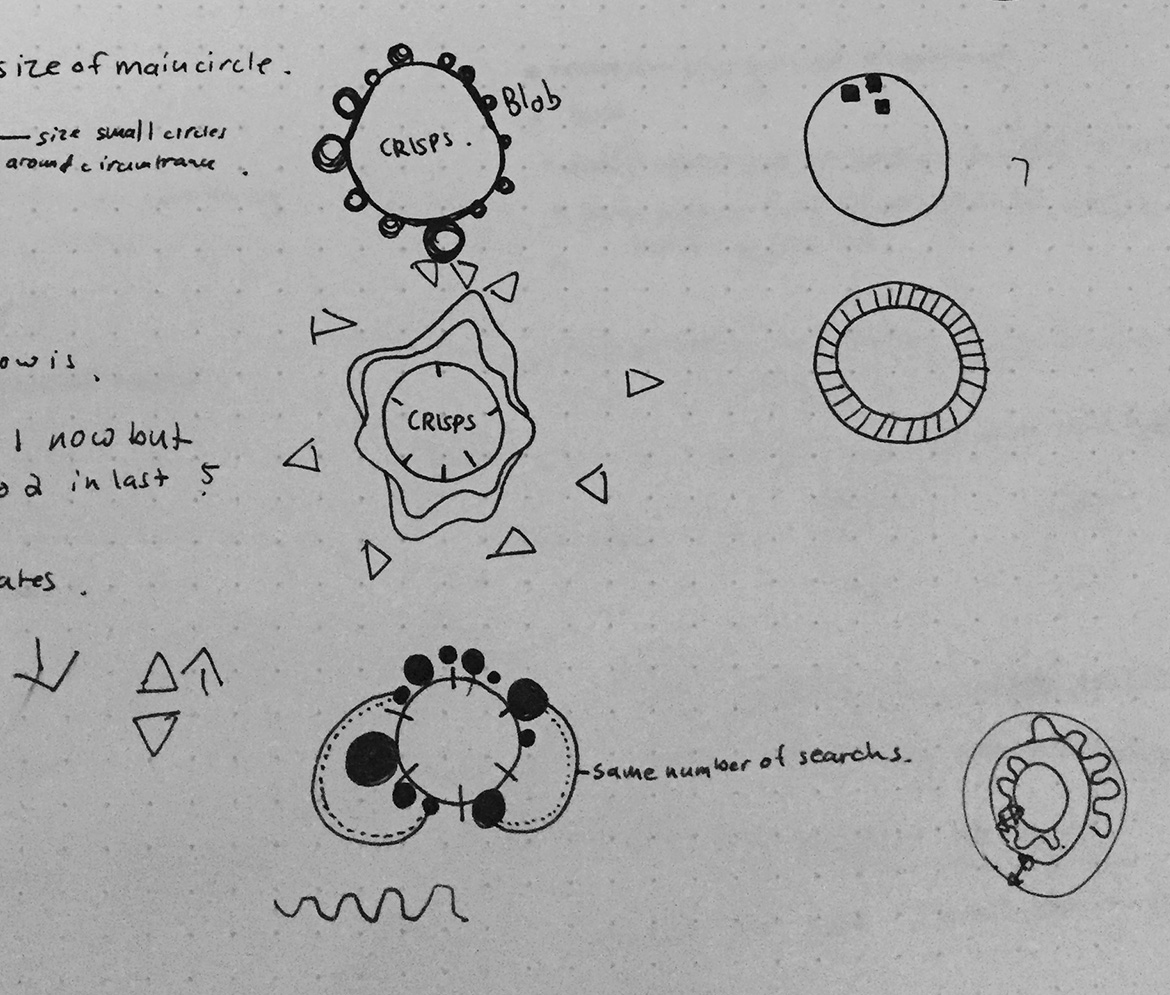 size of main circle.
size small circles
around circumtrance.
Blob
CRISPS.
ow is.
1 now but
o 2 in last 5
CRISPS
ates.
Same number of searchs.